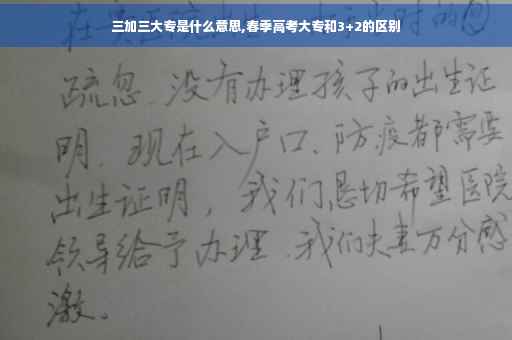 三加三大专是什么意思,春季高考大专和3+2的区别
疏忽.没有办理孩子的出生证
明.现在入户口、防疫都需要
出生证明，我们恳切希望医院
领导给予办理.我们夫妻万分感
激。